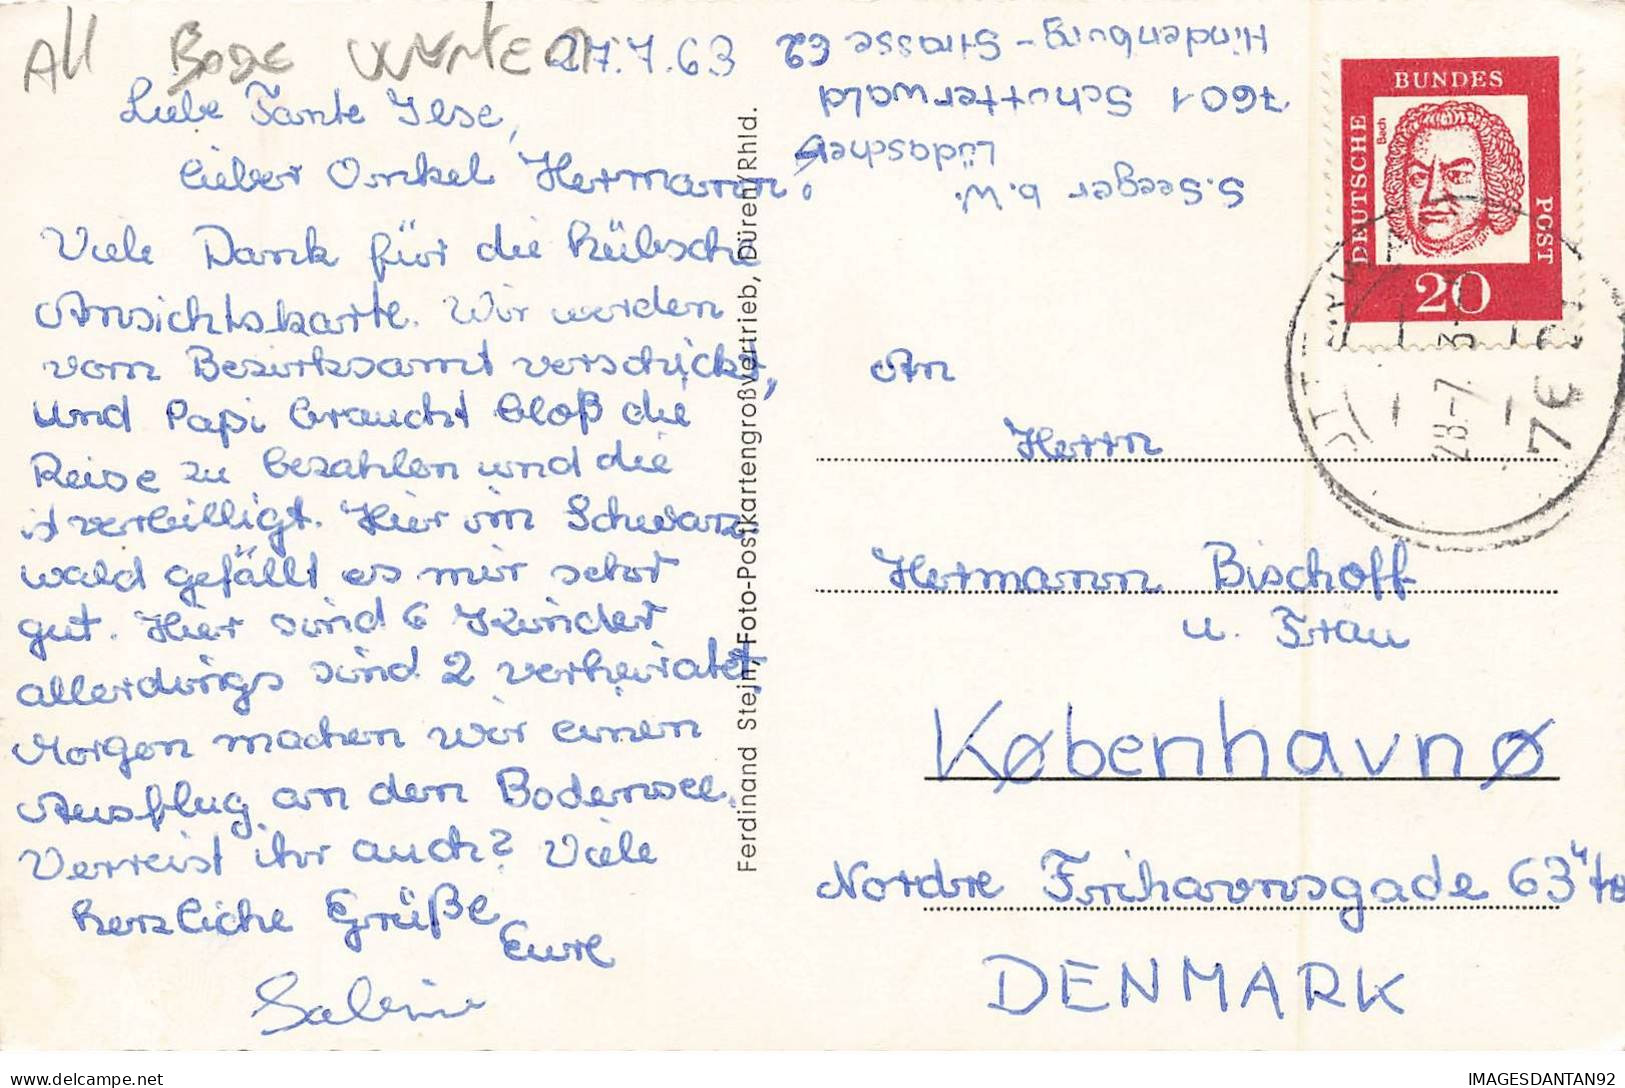 All BODE
27.7.63
Liebe Tante Ilse,
lieber Onkel Hermann!
Viele Dank für die hübsche
Ansichtskarte. Wir werden
vom Bezirksamt verschickt,
und Papi braucht bloß die
Reise zu bezahlen und die
ist verbilligt. Hier im Schwarz
wald gefällt es mir sehr
gut. Hier sind 6 Kinder
allerdings sind 2 verheiratet,
Morgen machen wir einen
Ausflug an den Bodensee.
Verreist ihr auch? Viele
herzliche Grüße
Eure
Sabine
Ferdinand Stein, Foto-Postkartengroßvertrieb, Düren/Rhld.
S. Seeger b. W.
Lüdascher
7601 Schutterwald
Hindenburg-Strasse 62
DEUTSCHE
BUNDES
POST
Bach
20
28.-7
76
An
Herrn
Hermann Bischoff
u. Frau
København Ø
Nordre Frihavnsgade 63 4 to
DENMARK
IMAGESDANTAN92